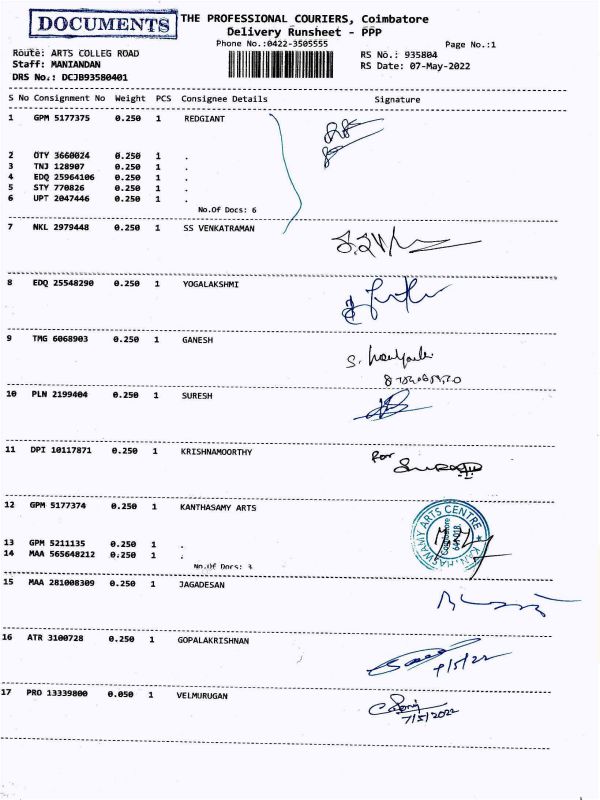 DOCUMENTS
THE PROFESSIONAL COURIERS, Coimbatore
Delivery Runsheet - PPP
Phone No.:0422-3505555
Page No.:1
Route: ARTS COLLEG ROAD
RS No.: 935804
Staff: MANIANDAN
RS Date: 07-May-2022
DRS No.: DCJB93580401
S No Consignment No Weight PCS Consignee Details Signature
1 GPM 5177375 0.250 1 REDGIANT
2 OTY 3660024 0.250 1 .
3 TNJ 128907 0.250 1 .
4 EDQ 25964106 0.250 1 .
5 STY 770826 0.250 1 .
6 UPT 2047446 0.250 1 .
No.Of Docs: 6
7 NKL 2979448 0.250 1 SS VENKATRAMAN
8 EDQ 25548290 0.250 1 YOGALAKSHMI
9 TMG 6068903 0.250 1 GANESH
10 PLN 2199404 0.250 1 SURESH
11 DPI 10117871 0.250 1 KRISHNAMOORTHY
12 GPM 5177374 0.250 1 KANTHASAMY ARTS
13 GPM 5211135 0.250 1 .
14 MAA 565648212 0.250 1 .
No.Of Docs: 3
15 MAA 281008309 0.250 1 JAGADESAN
16 ATR 3100728 0.250 1 GOPALAKRISHNAN
9/5/22
17 PRO 13339800 0.050 1 VELMURUGAN
7/5/2022